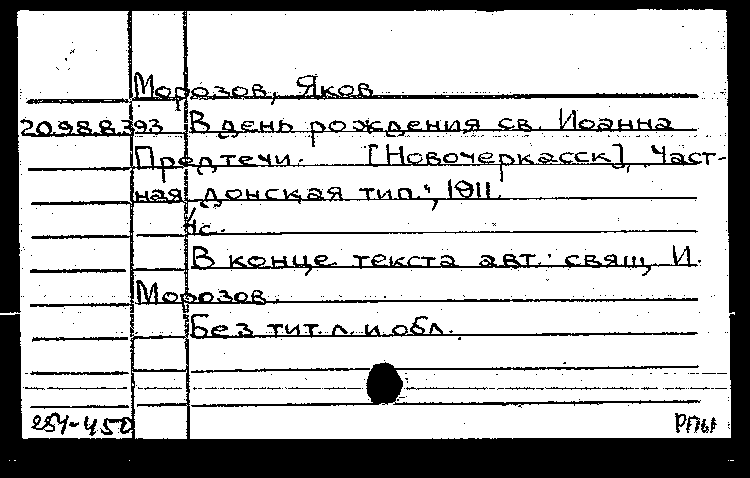 Морозов, Яков
20.98.8.393 В день рождения св. Иоанна
Предтечи. [Новочеркасск], Част-
ная Донская тип., 1911.
4с.
В конце текста авт.: свящ. И.
Морозов.
Без тит. л. и обл.
254-450 РПБ1